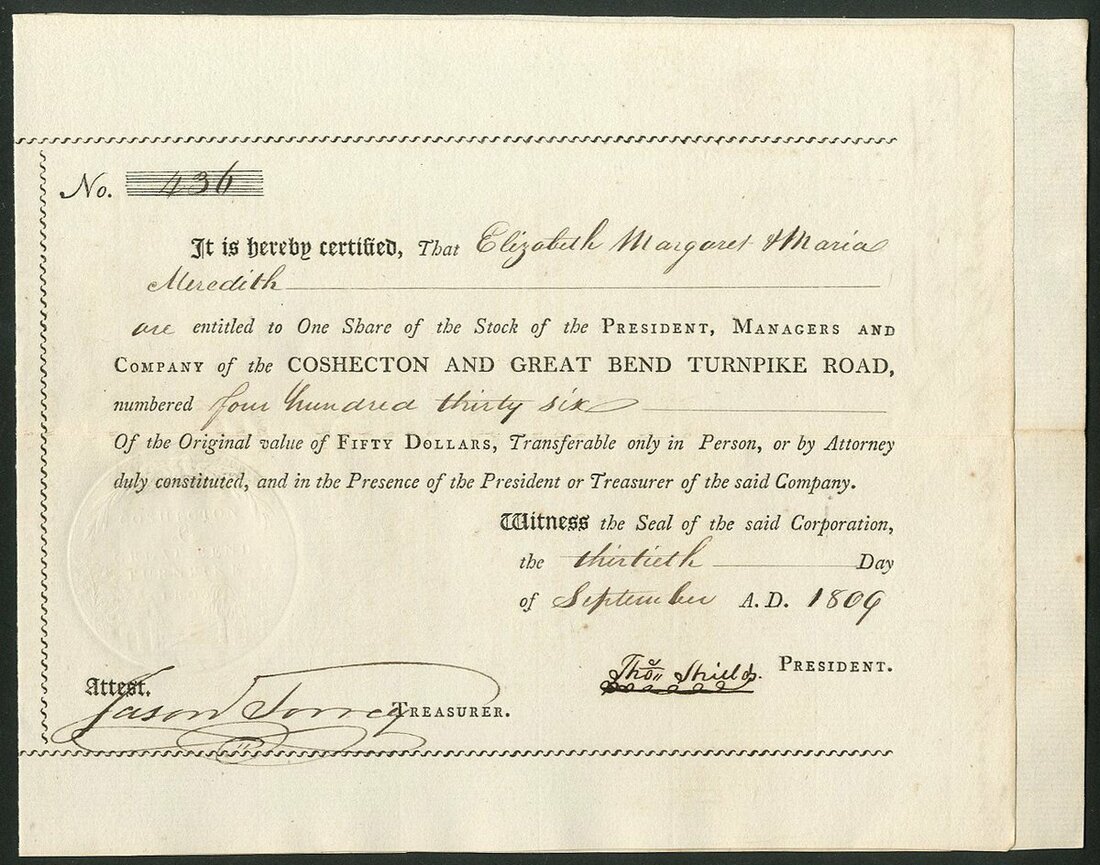 No. 436
It is hereby certified, That Elizabeth Margaret & Maria
Meredith
are entitled to One Share of the Stock of the PRESIDENT, MANAGERS AND
COMPANY of the COSHECTON AND GREAT BEND TURNPIKE ROAD,
numbered four hundred thirty six
Of the Original value of FIFTY DOLLARS, Transferable only in Person, or by Attorney
duly constituted, and in the Presence of the President or Treasurer of the said Company.
Witness the Seal of the said Corporation,
the thirtieth Day
of September A.D. 1809
Thos Shields. PRESIDENT.
Attest.
Jason Torrey TREASURER.
COSHECTON
GREAT BEND